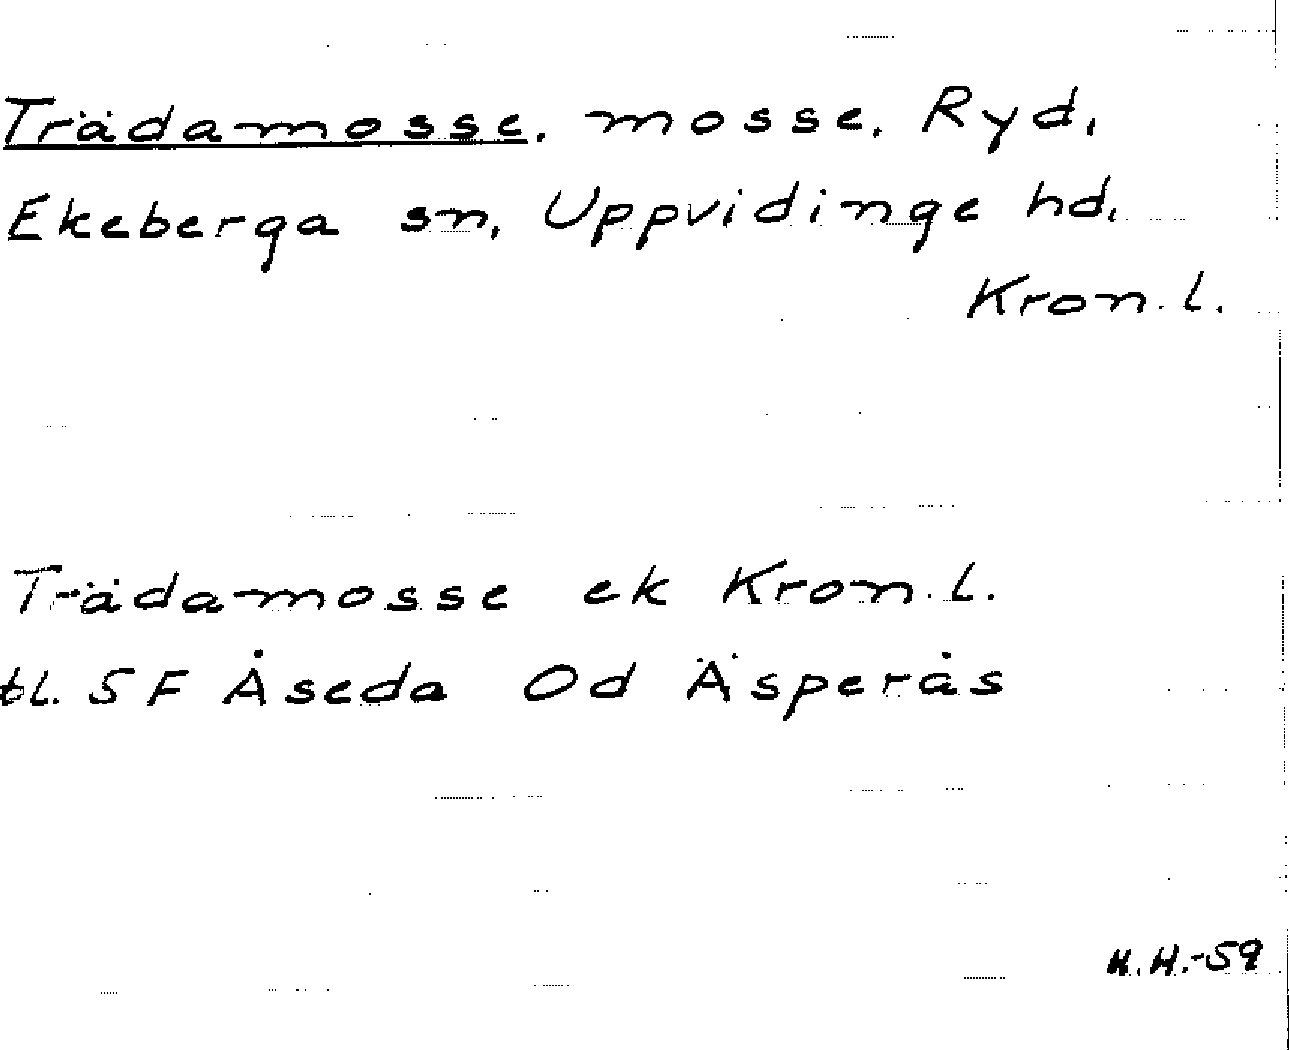 Trädamosse, mosse, Ryd,
Ekeberga sn, Uppvidinge hd,
Kron. l.
Trädamosse ek Kron. l.
bl. 5 F Åseda Od Äsperås
H.H.-59